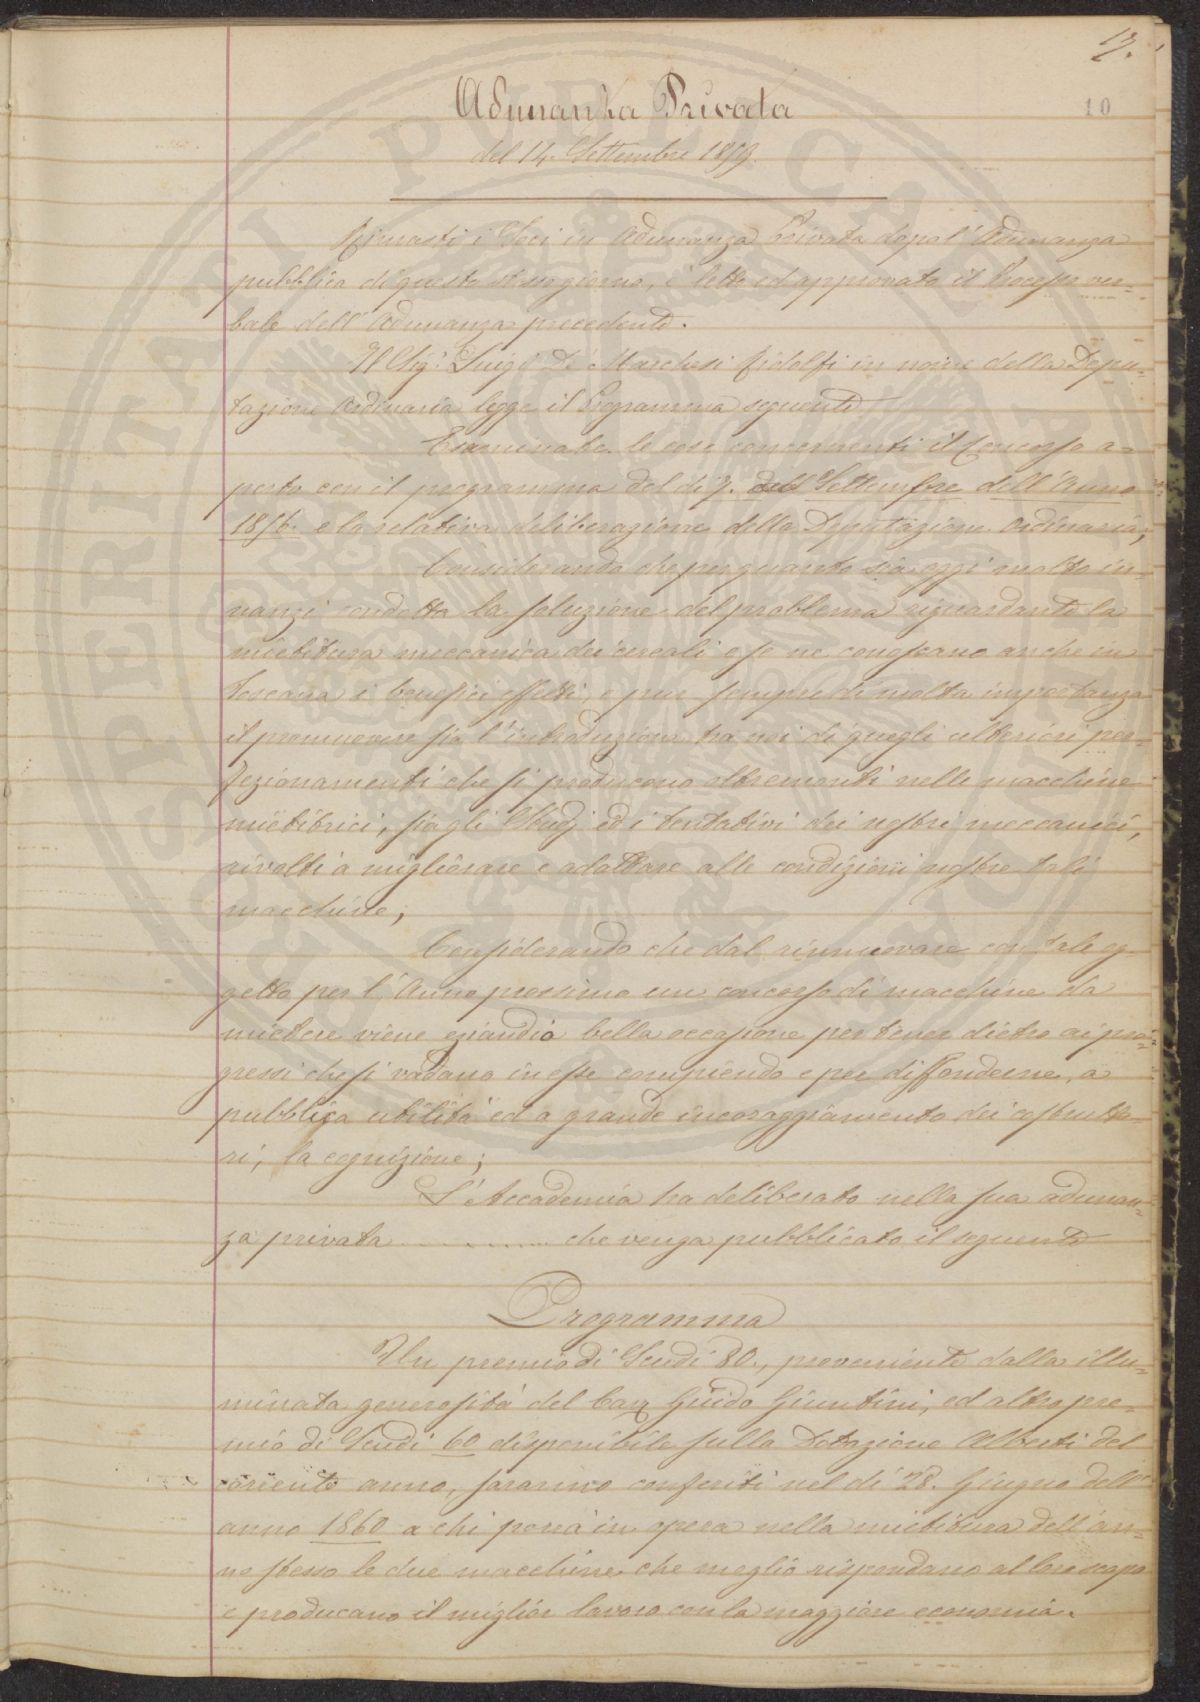 17.
10
Adunanza Privata
del 14. Settembre 1859.
Rimasti i Soci in Adunanza Privata dopo l'Adunanza
pubblica di questo stesso giorno, è letto ed approvato il Processo ver-
bale dell'Adunanza precedente.
Il Sig.r Luigi De' Marchesi Ridolfi in nome della Depu-
tazione Ordinaria legge il Programma seguente
Esaminate le cose concernenti il Concorso a-
perto con il programma del dì 7. dell Settembre dell'Anno
1856. e la relativa deliberazione della Deputazione Ordinaria,
Considerando che per quanto sia oggi molto in-
nanzi condotta la soluzione del problema riguardante la
mietitura meccanica dei cereali e se ne conoscano anche in
Toscana i benefici effetti, è pur sempre di molta importanza
il promuovere sia l'introduzione tra noi di quegli ulteriori per-
fezionamenti che si producono oltremonti nelle macchine
mietitrici, sia gli studj ed i tentativi dei nostri meccanici,
rivolti a migliorare e adattare alle condizioni nostre tali
macchine;
Considerando che dal rinnuovare con tale og-
getto per l'Anno prossimo un concorso di macchine da
mietere viene eziandio bella occasione per tener dietro ai pro-
gressi che si vadano in esse compiendo e per diffonderne, a
pubblica utilità ed a grande incoraggiamento dei costrutto-
ri, la cognizione;
L'Accademia ha deliberato nella sua adunan-
za privata ........... che venga pubblicato il seguente
Programma
Un premio di Scudi 80., proveniente dalla illu-
minata generosità del Cav Guido Giuntini, ed altro pre-
mio di Scudi 60 disponibile sulla Dotazione Alberti del
corrente anno, saranno conferiti nel dì 28. Giugno dell'
anno 1860 a chi porrà in opera nella mietitura dell'an-
no stesso le due macchine che meglio rispondano al loro scopo
e producano il miglior lavoro con la maggiore economia.